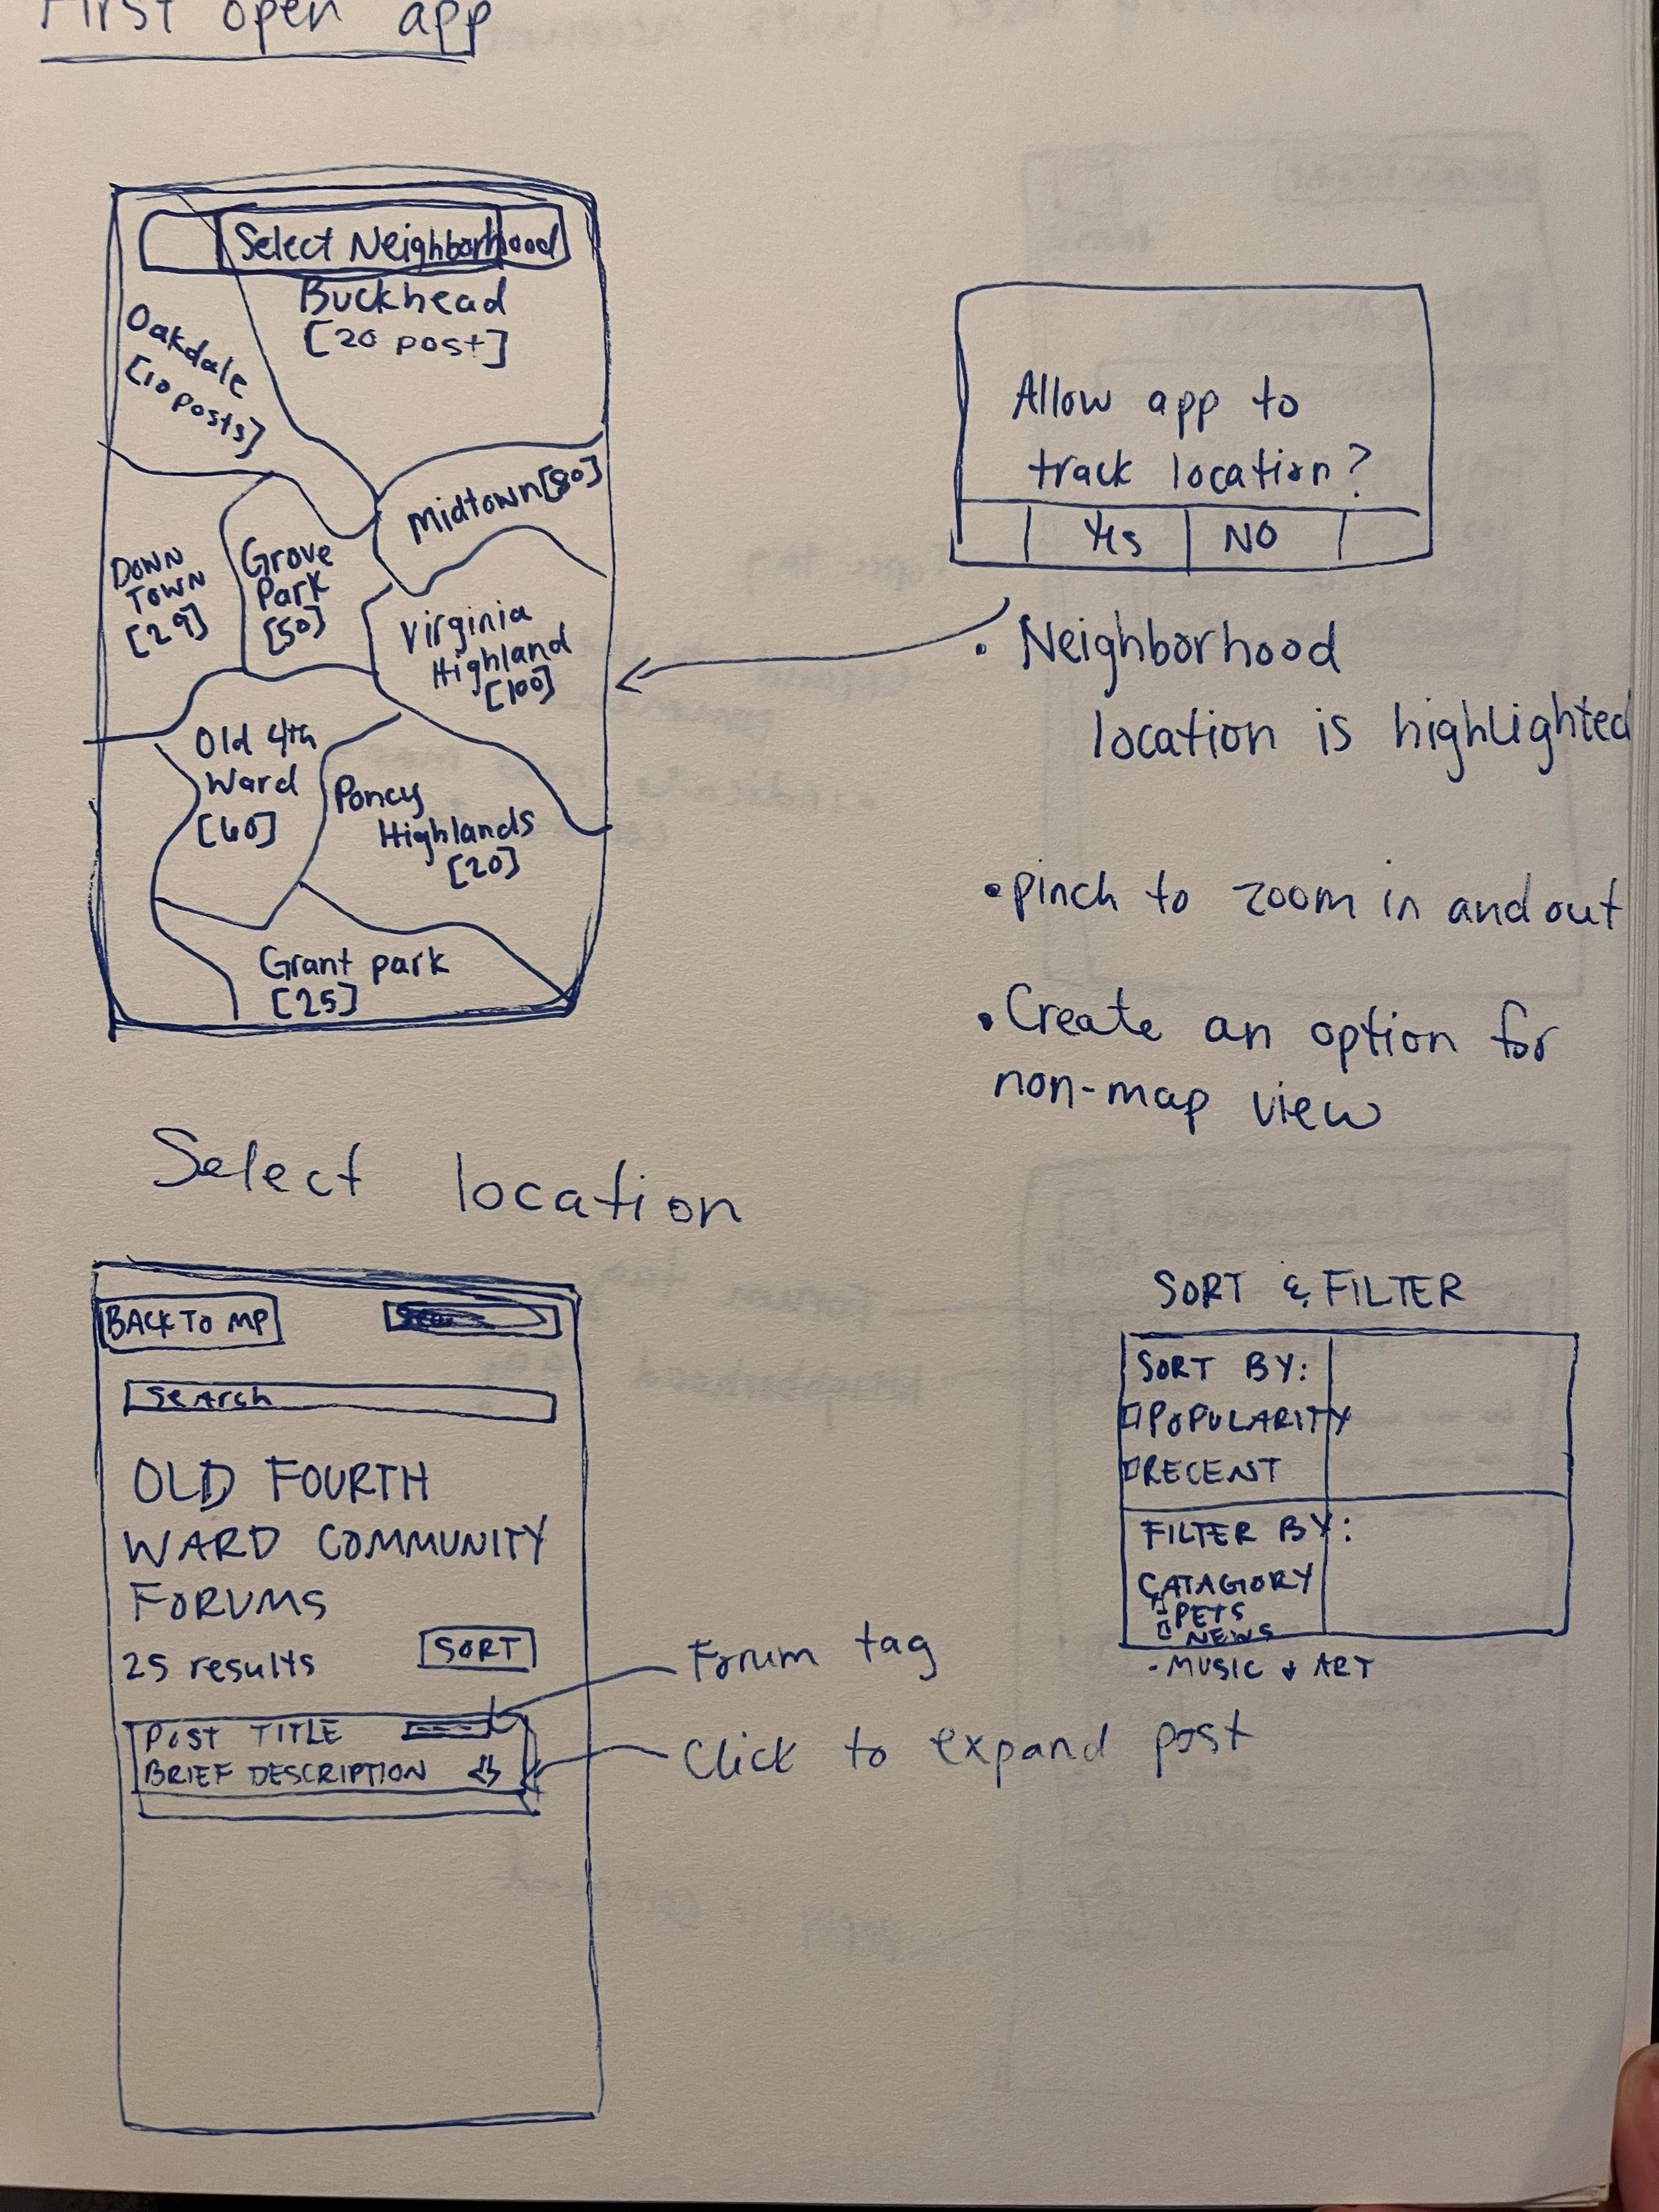 First open app
Select Neighborhood
Buckhead
[20 post]
Oakdale
[10 posts]
Midtown [80]
DOWN
TOWN
[29]
Grove
Park
[50]
Virginia
Highland
[100]
Old 4th
Ward
[60]
Poncy
Highlands
[20]
Grant park
[25]
Allow app to
track location?
Yes NO
• Neighborhood
location is highlighted
• pinch to zoom in and out
• Create an option for
non-map view
Select location
BACK TO MP
Search
OLD FOURTH
WARD COMMUNITY
FORUMS
25 results
SORT
POST TITLE
BRIEF DESCRIPTION
Forum tag
Click to expand post
SORT & FILTER
SORT BY:
POPULARITY
RECENT
FILTER BY:
CATAGORY
PETS
NEWS
- MUSIC & ART